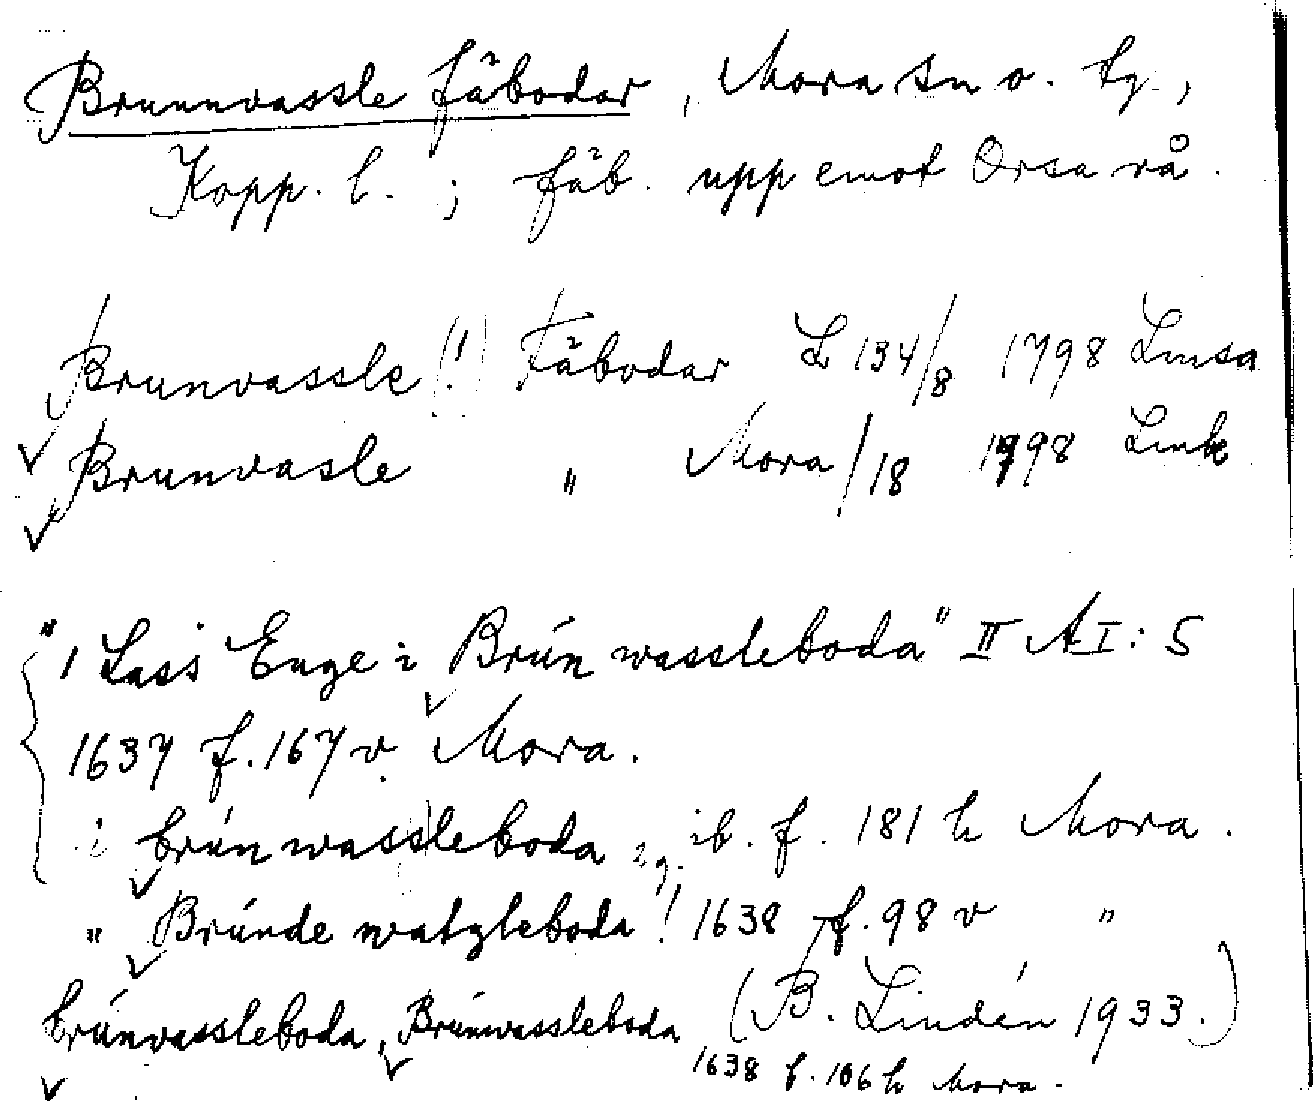 Brunnvassle fäbodar, Mora sn o. tg.,
Kopp. l.; fäb. upp emot Orsa rå.
Brunvassle (!) Fäbodar L 134/8 1798 Lmsa
Brunvasle " Mora/18 1798 Lmk
"1 Lass Enge i Brún wassleboda" II A I: 5
1637 f. 167 v. Mora.
i brún wassleboda ib. f. 181 h Mora.
" Brúnde watzleboda! 1638 f. 98 v "
brúnvassleboda, Brúnwassleboda (B. Lindén 1933.)
1638 f. 106 h Mora.